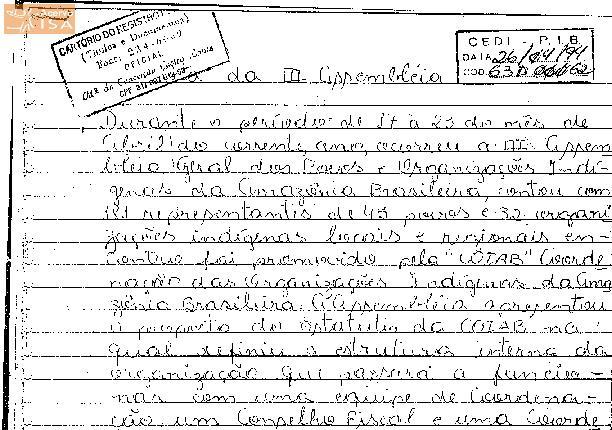 Acervo
ISA
CARTÓRIO DO REGISTRO
(Títulos e Documentos)
Fone: 234-
OFICIAL
CEDI - P.I.B.
DATA 26/04/91
COD. 63D00062
da III Assembléia
Durante o período de 17 a 23 do mês de
Abril do corrente ano, ocorreu a III Assem
bléia Geral dos Povos e Organizações Indí-
genas da Amazônia Brasileira, contou com
representantis de 45 povos e 32 organi
zações indígenas locais e regionais en-
contro foi promovido pela "COIAB" Coorde
nação das Organizações Indigenas da Ama
zônia Brasileira. A Assembléia apresentou
a proposta do Estatuto da COIAB na
qual definiu a estrutura interna da
organização que passará a funcio-
nar com uma equipe de Coordena-
ção um Conselho Fiscal e uma Coorde